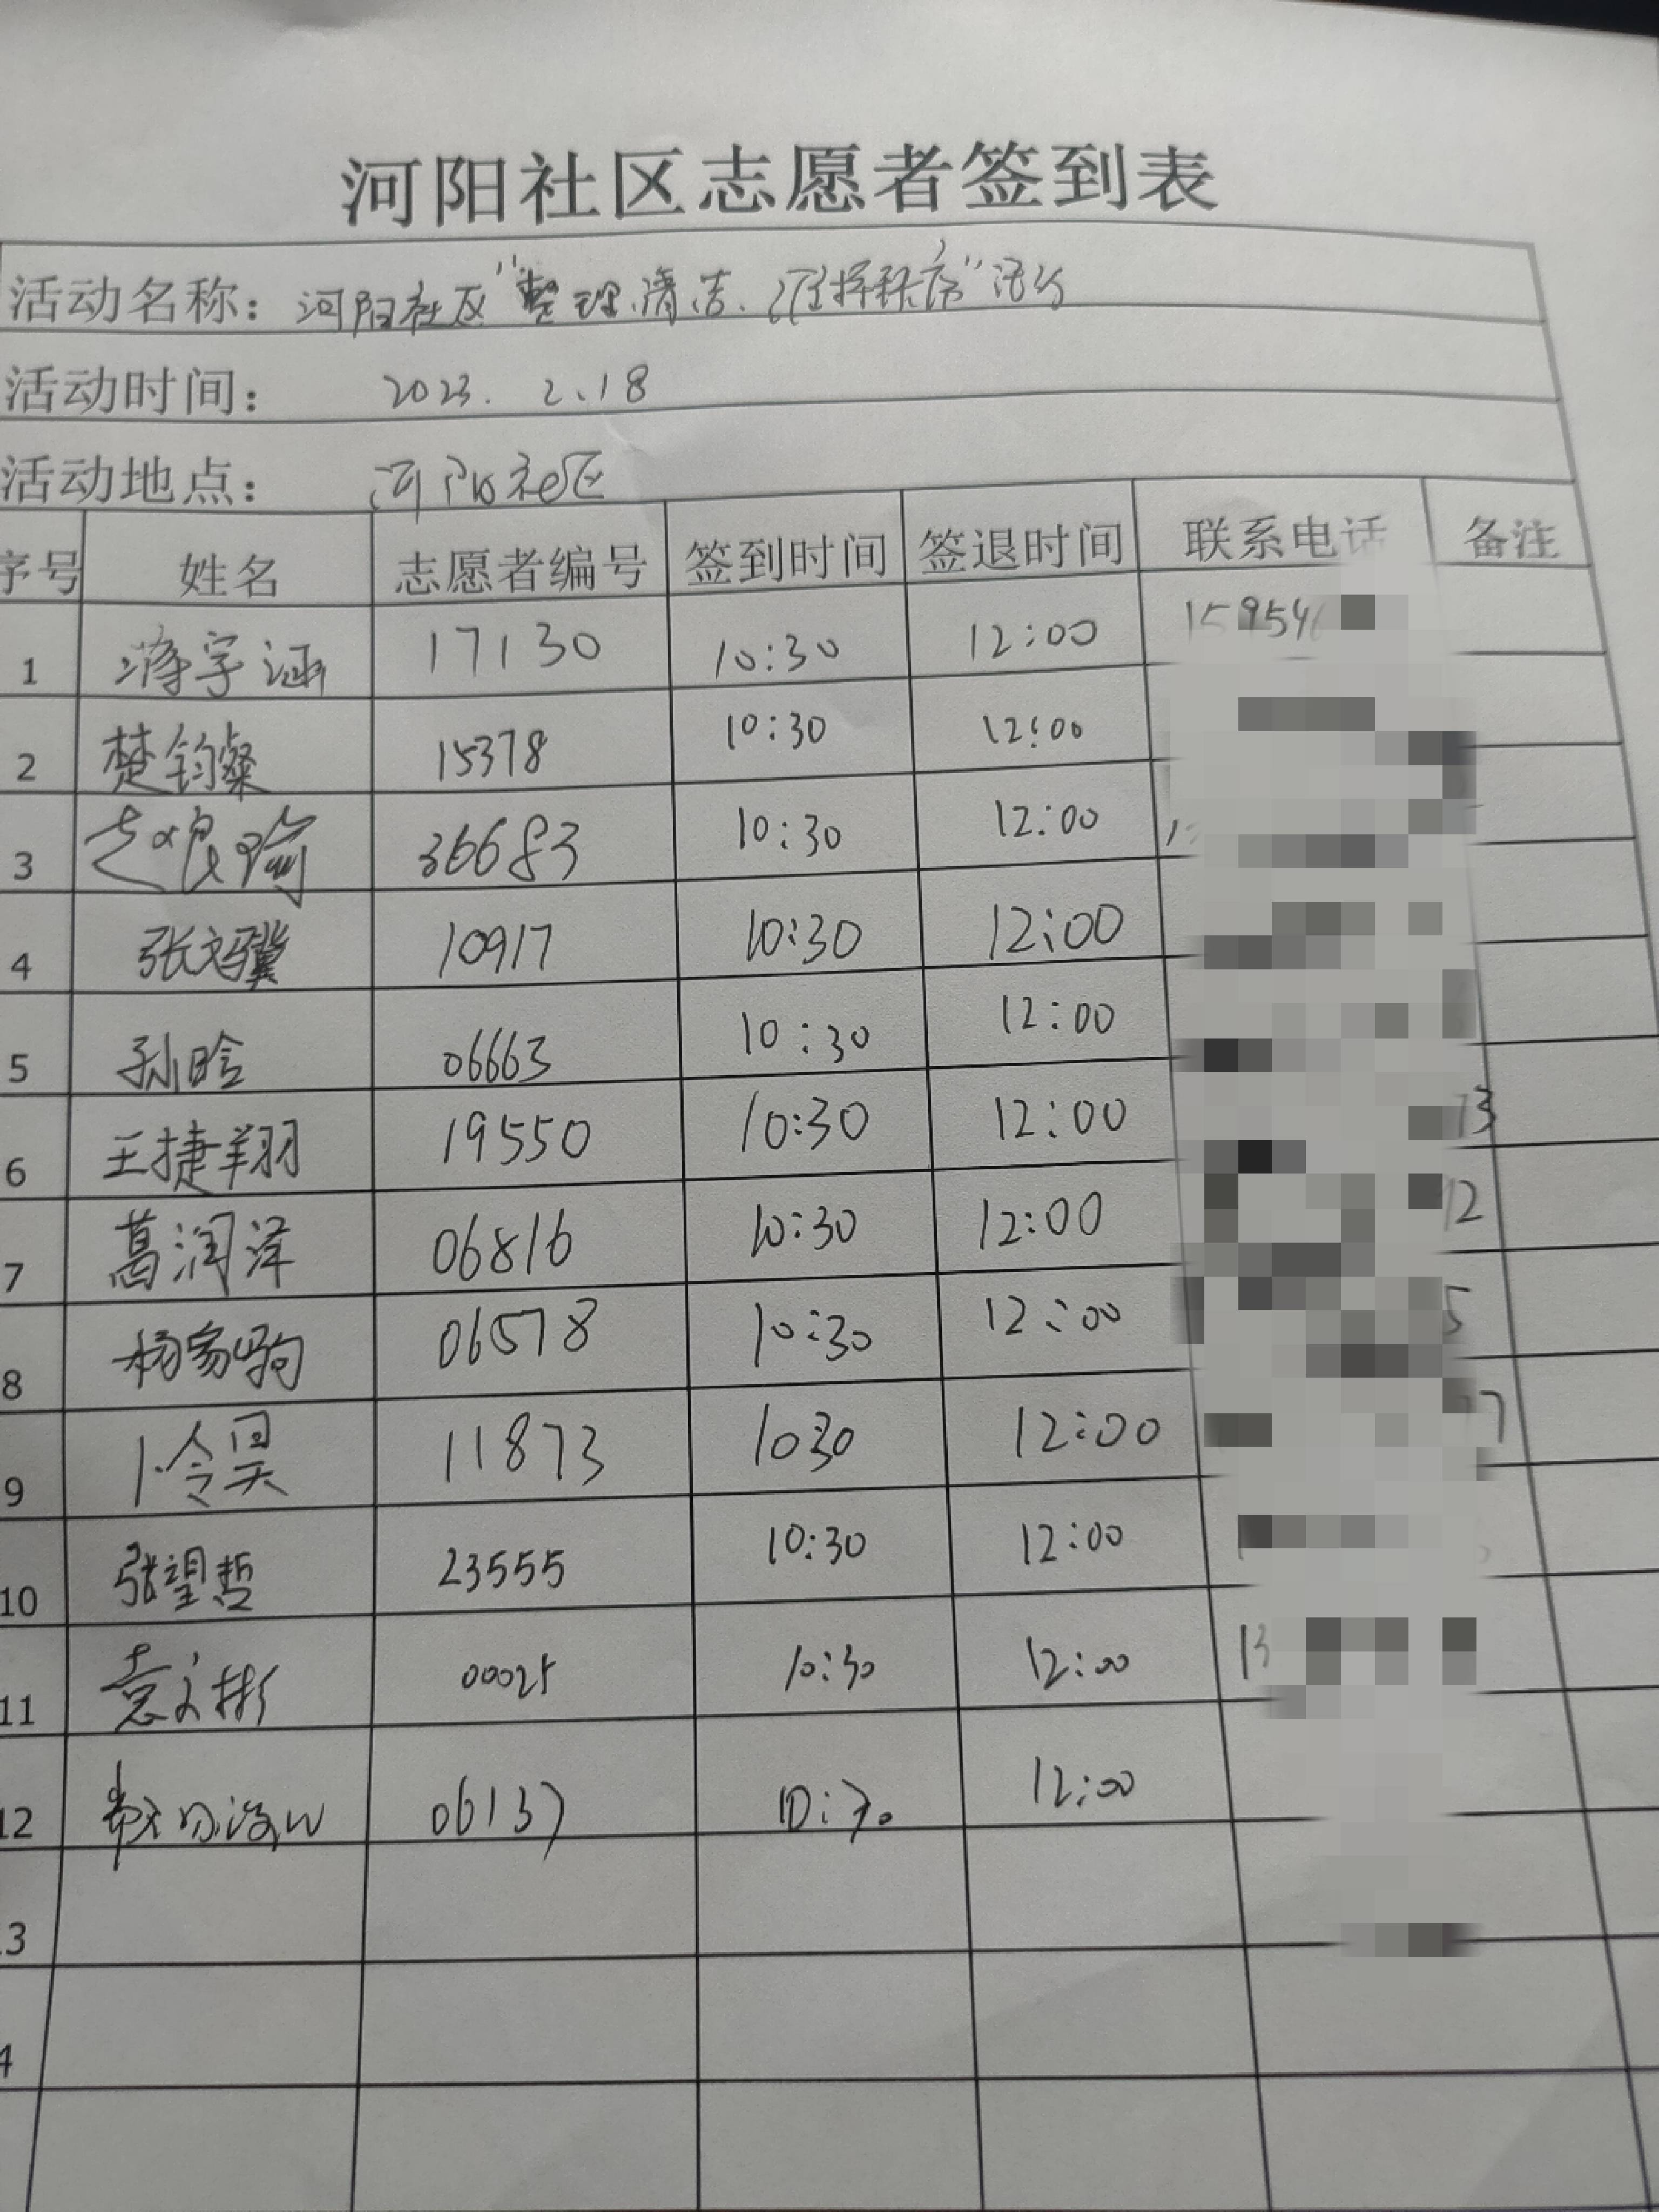 河阳社区志愿者签到表
活动名称：河阳社区"整理清洁、维持秩序"活动
活动时间： 2023. 2.18
活动地点： 河阳社区
序号 姓名 志愿者编号 签到时间 签退时间 联系电话 备注
1 蒋宇涵 17130 10:30 12:00
2 楚钧燦 15378 10:30 12:00
3 36683 10:30 12:00
4 张文骥 10917 10:30 12:00
5 孙晗 06663 10:30 12:00
6 王捷翔 19550 10:30 12:00
7 葛润洋 06816 10:30 12:00
8 杨家驹 06578 10:30 12:00
9 卜令昊 11873 1030 12:00
10 张望哲 23555 10:30 12:00
11 袁文彬 00025 10:30 12:00
12 06137 10:30 12:00